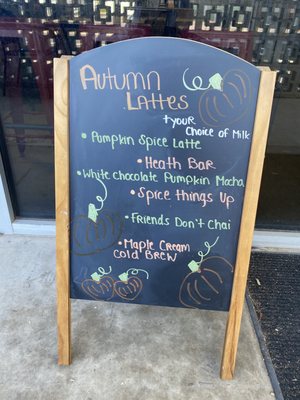 Autumn
Lattes
+your
Choice of Milk
• Pumpkin Spice Latte
• Heath Bar
• White chocolate Pumpkin Mocha
• Spice things Up
• Friends Don't Chai
• Maple Cream
Cold Brew